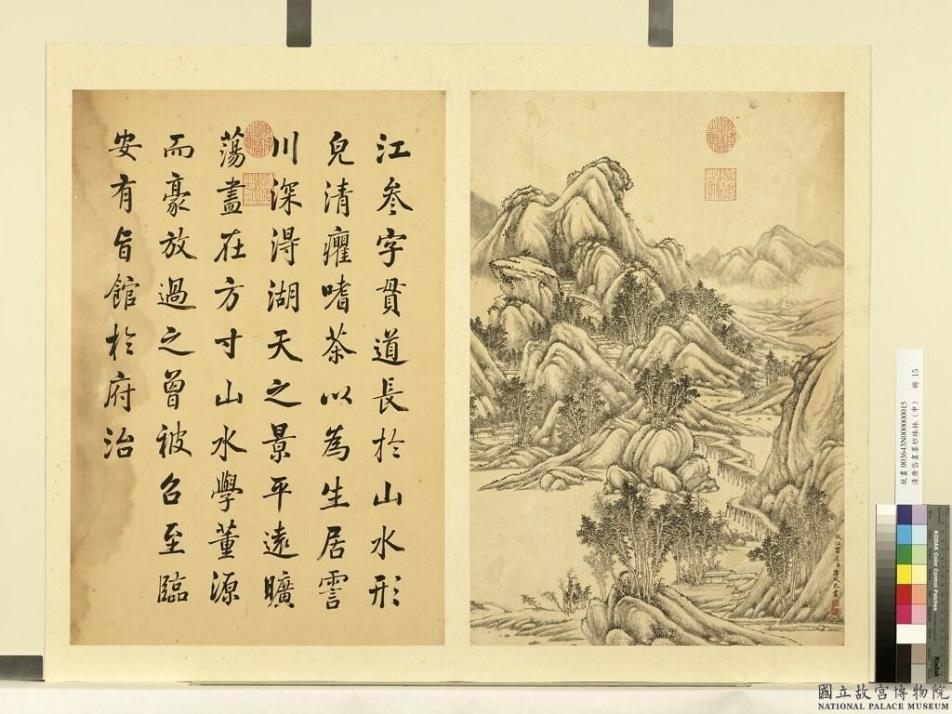 江參字貫道長於山水形
皃清癯嗜茶以為生居霅
川深淂湖天之景平遠曠
蕩盡在方寸山水學董源
而豪放過之曾被召至臨
安有旨館於府治
故畫 003643N000000015
清唐岱畫墨妙珠林（申） 冊 15
KODAK Color Control Patches
Kodak
國立故宮博物院
NATIONAL PALACE MUSEUM